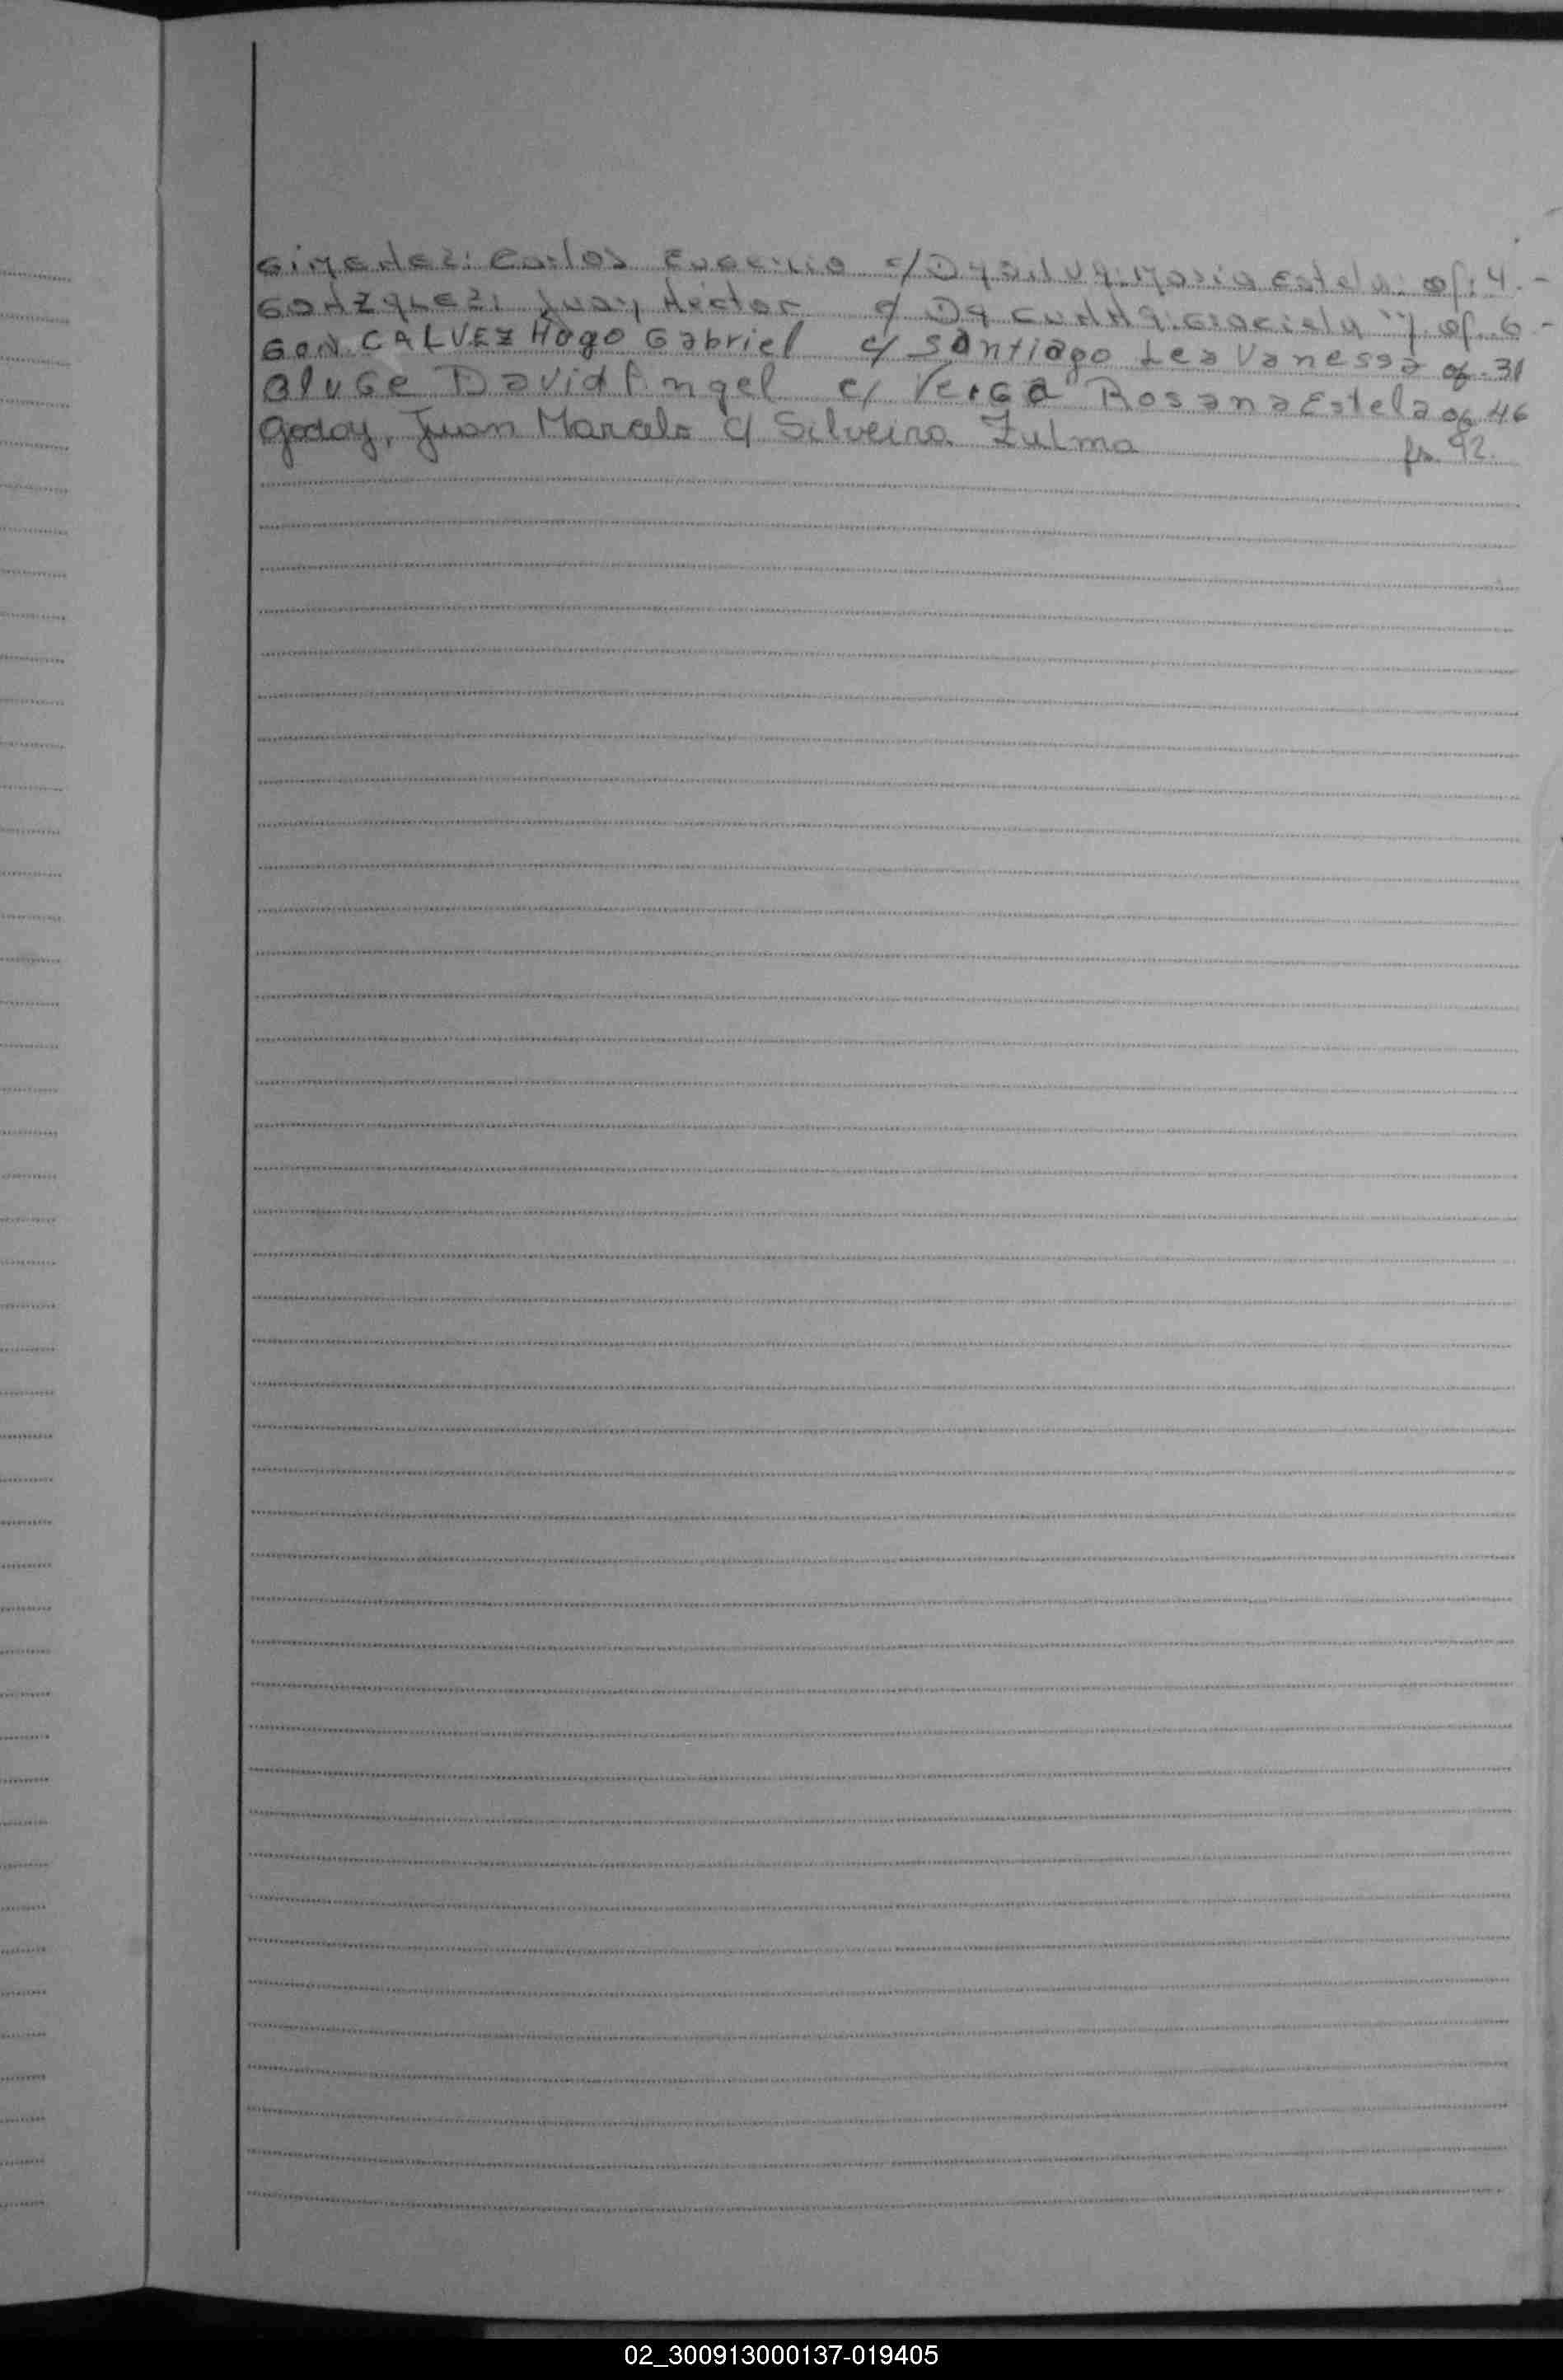 Gimenez: Carlos Eugenio c/ Da Silva: Maria Estela: of: 4.-
GONZALEZ: Juan Hector c/ Da CUNHA: Graciela M. of. 6-
GON CALVEZ Hugo Gabriel c/ Santiago Lea Vanessa of. 31
David Angel c/ VerGa Rosana Estela of 46
Godoy, Juan Marcelo c/ Silveira Zulma fs. 92.
02_300913000137-019405